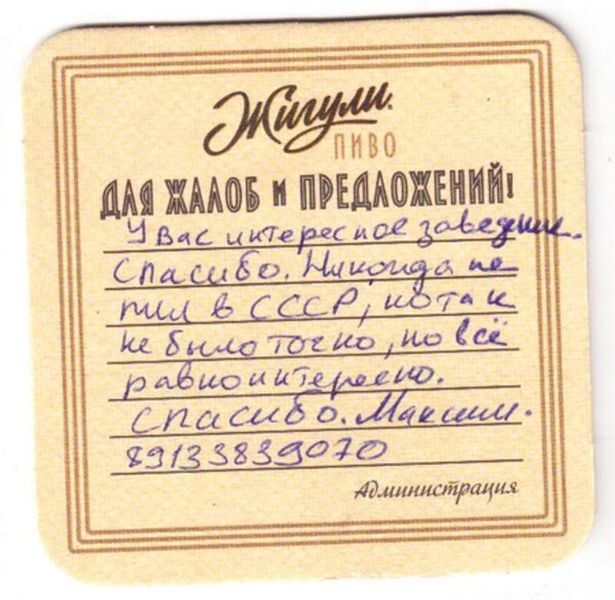 Жигули.
ПИВО
ДЛЯ ЖАЛОБ и ПРЕДЛОЖЕНИЙ!
У Вас интересное заведение.
Спасибо. Никогда не
пил в СССР, но так
не было точно, но всё
равно интересно.
Спасибо. Максим.
89133839070
Администрация